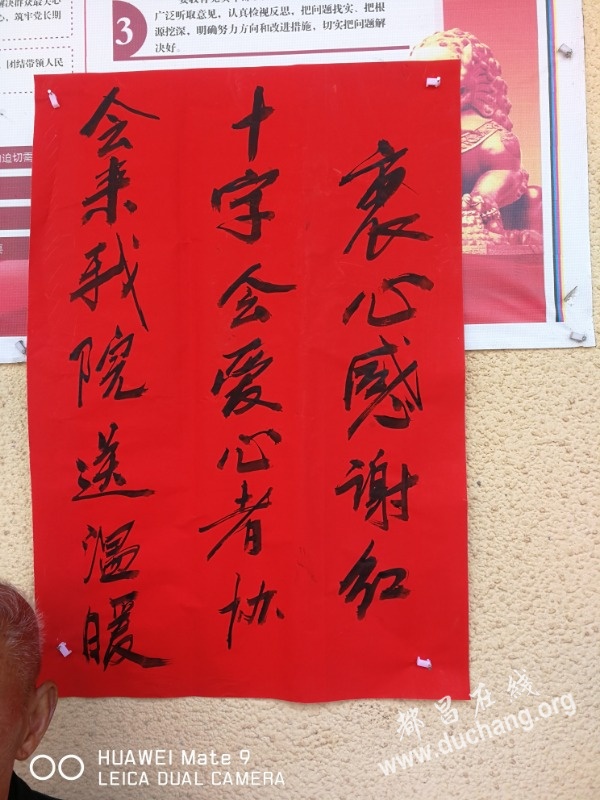 广泛听取意见，认真检视反思，把问题找实、把根
源挖深，明确努力方向和改进措施，切实把问题解
决好。
3
心，筑牢党长期
、团结带领人民
迫切需
衷心感谢红
十字会爱心者协
会来我院送温暖
都昌在线
www.duchang.org
HUAWEI Mate 9
LEICA DUAL CAMERA